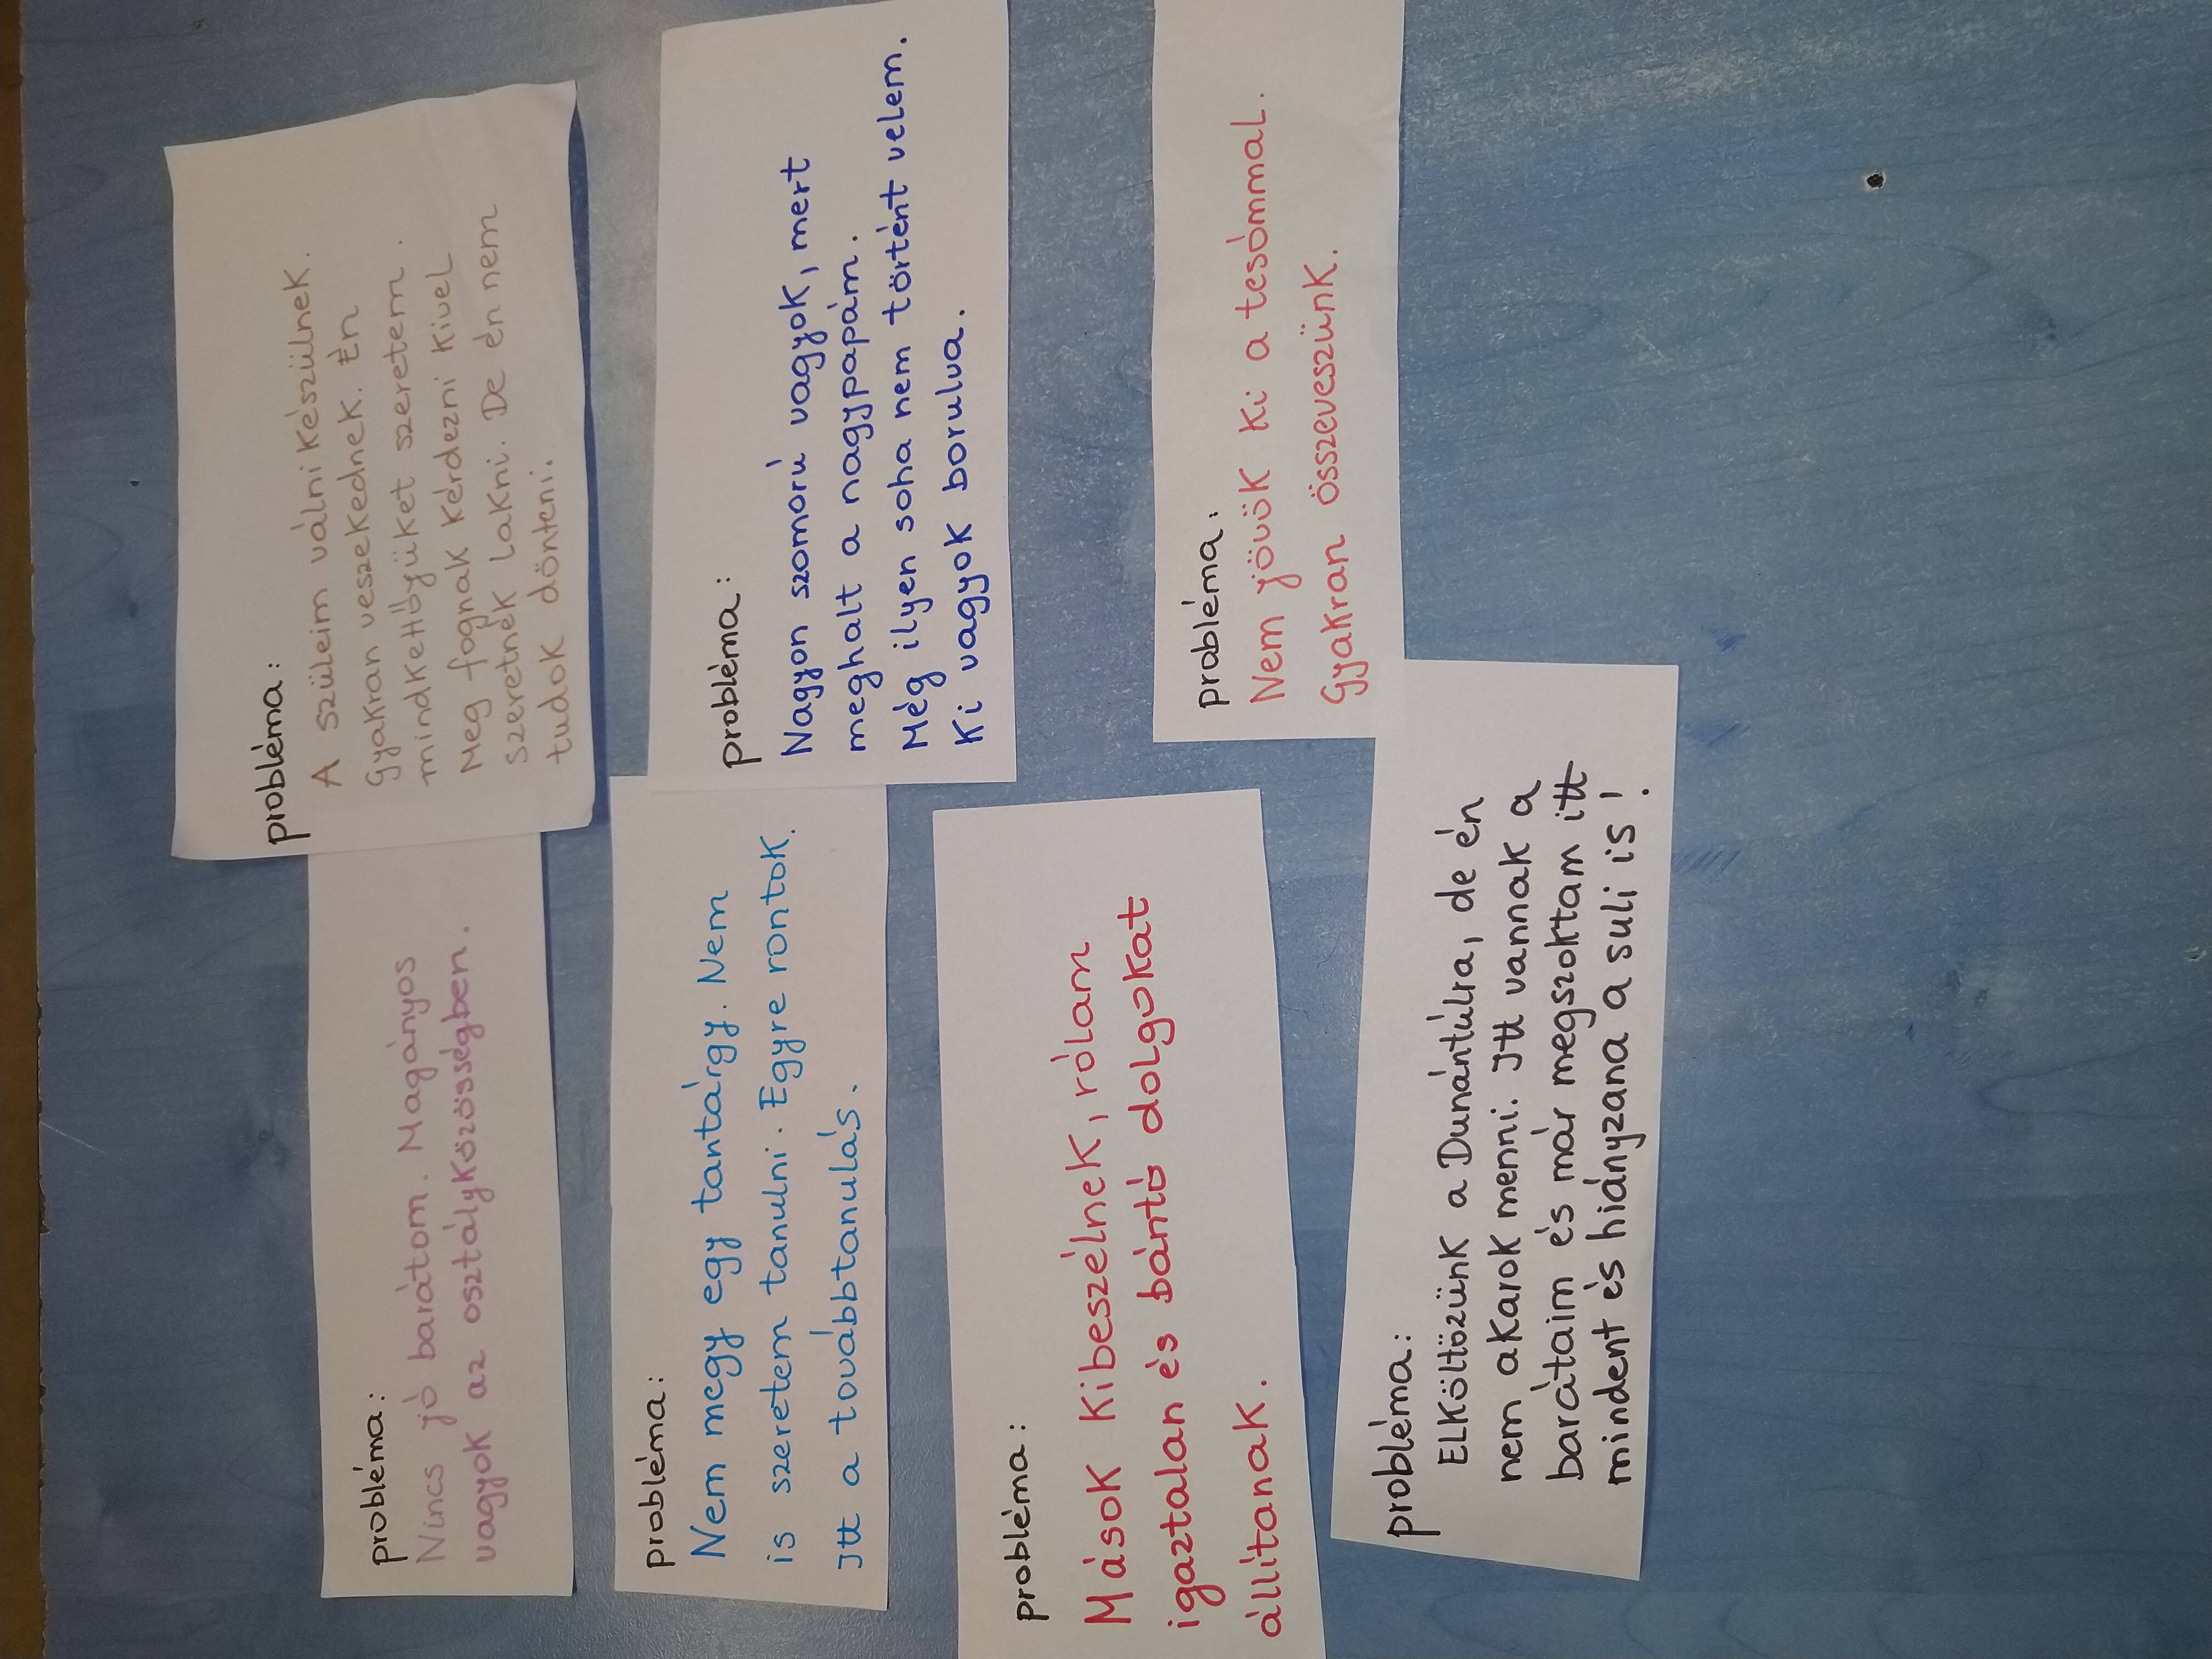 probléma:
Nincs jó barátom. Magányos
vagyok az osztályközösségben.
probléma:
A szüleim válni készülnek.
Gyakran veszekednek. Én
mindkettőjüket szeretem.
Meg fognak kérdezni kivel
szeretnék lakni. De én nem
tudok dönteni.
probléma:
Nem megy egy tantárgy. Nem
is szeretem tanulni. Egyre rontok.
Itt a továbbtanulás.
probléma:
Nagyon szomorú vagyok, mert
meghalt a nagypapám.
Még ilyen soha nem történt velem.
Ki vagyok borulva.
probléma:
Mások kibeszélnek, rólam
igaztalan és bántó dolgokat
állítanak.
probléma:
Nem jövök ki a tesómmal.
Gyakran összeveszünk.
probléma:
Elköltözünk a Dunántúlra, de én
nem akarok menni. Itt vannak a
barátaim és már megszoktam itt
mindent és hiányzana a suli is!